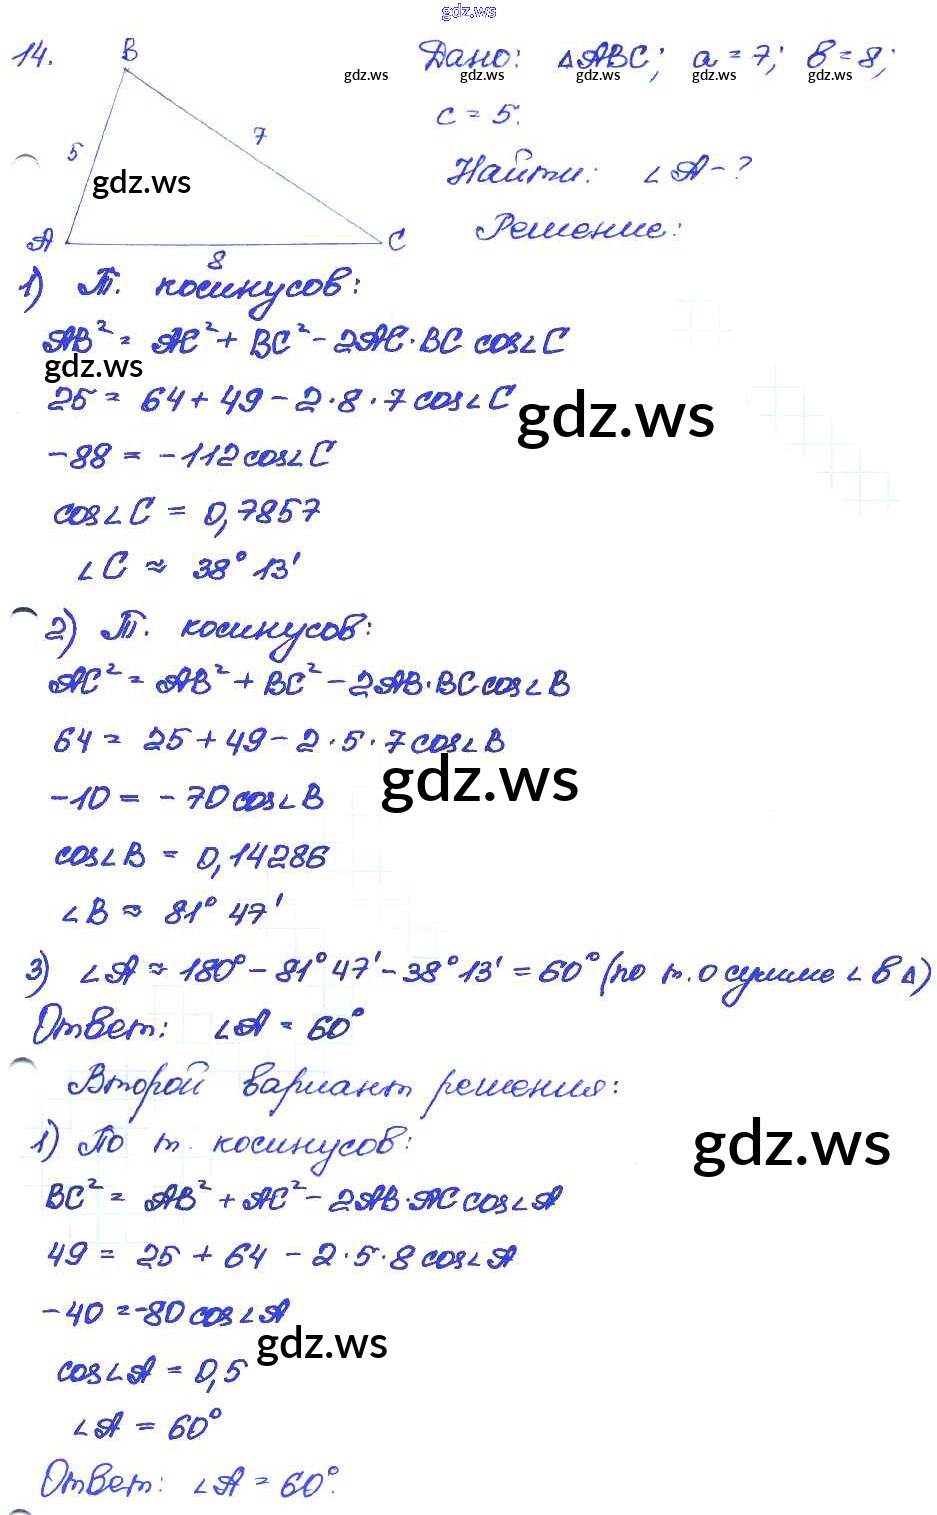 gdz.ws
14.
B
Дано: △ABC; a = 7; b = 8;
gdz.ws gdz.ws gdz.ws gdz.ws
c = 5.
5
7
gdz.ws
Найти: ∠A - ?
Решение:
A
C
8
1) Т. косинусов:
AB² = AC² + BC² - 2AC·BC cos∠C
gdz.ws
25 = 64 + 49 - 2·8·7 cos∠C
gdz.ws
-88 = -112 cos∠C
cos∠C = 0,7857
∠C ≈ 38° 13'
2) Т. косинусов:
AC² = AB² + BC² - 2AB·BC cos∠B
64 = 25 + 49 - 2·5·7 cos∠B
gdz.ws
-10 = -70 cos∠B
cos∠B = 0,14286
∠B ≈ 81° 47'
3) ∠A ≈ 180° - 81° 47' - 38° 13' = 60° (по т. о сумме ∠ в △)
Ответ: ∠A = 60°
Второй вариант решения:
1) По т. косинусов:
gdz.ws
BC² = AB² + AC² - 2AB·AC cos∠A
49 = 25 + 64 - 2·5·8 cos∠A
-40 = -80 cos∠A
gdz.ws
cos∠A = 0,5
∠A = 60°
Ответ: ∠A = 60°.